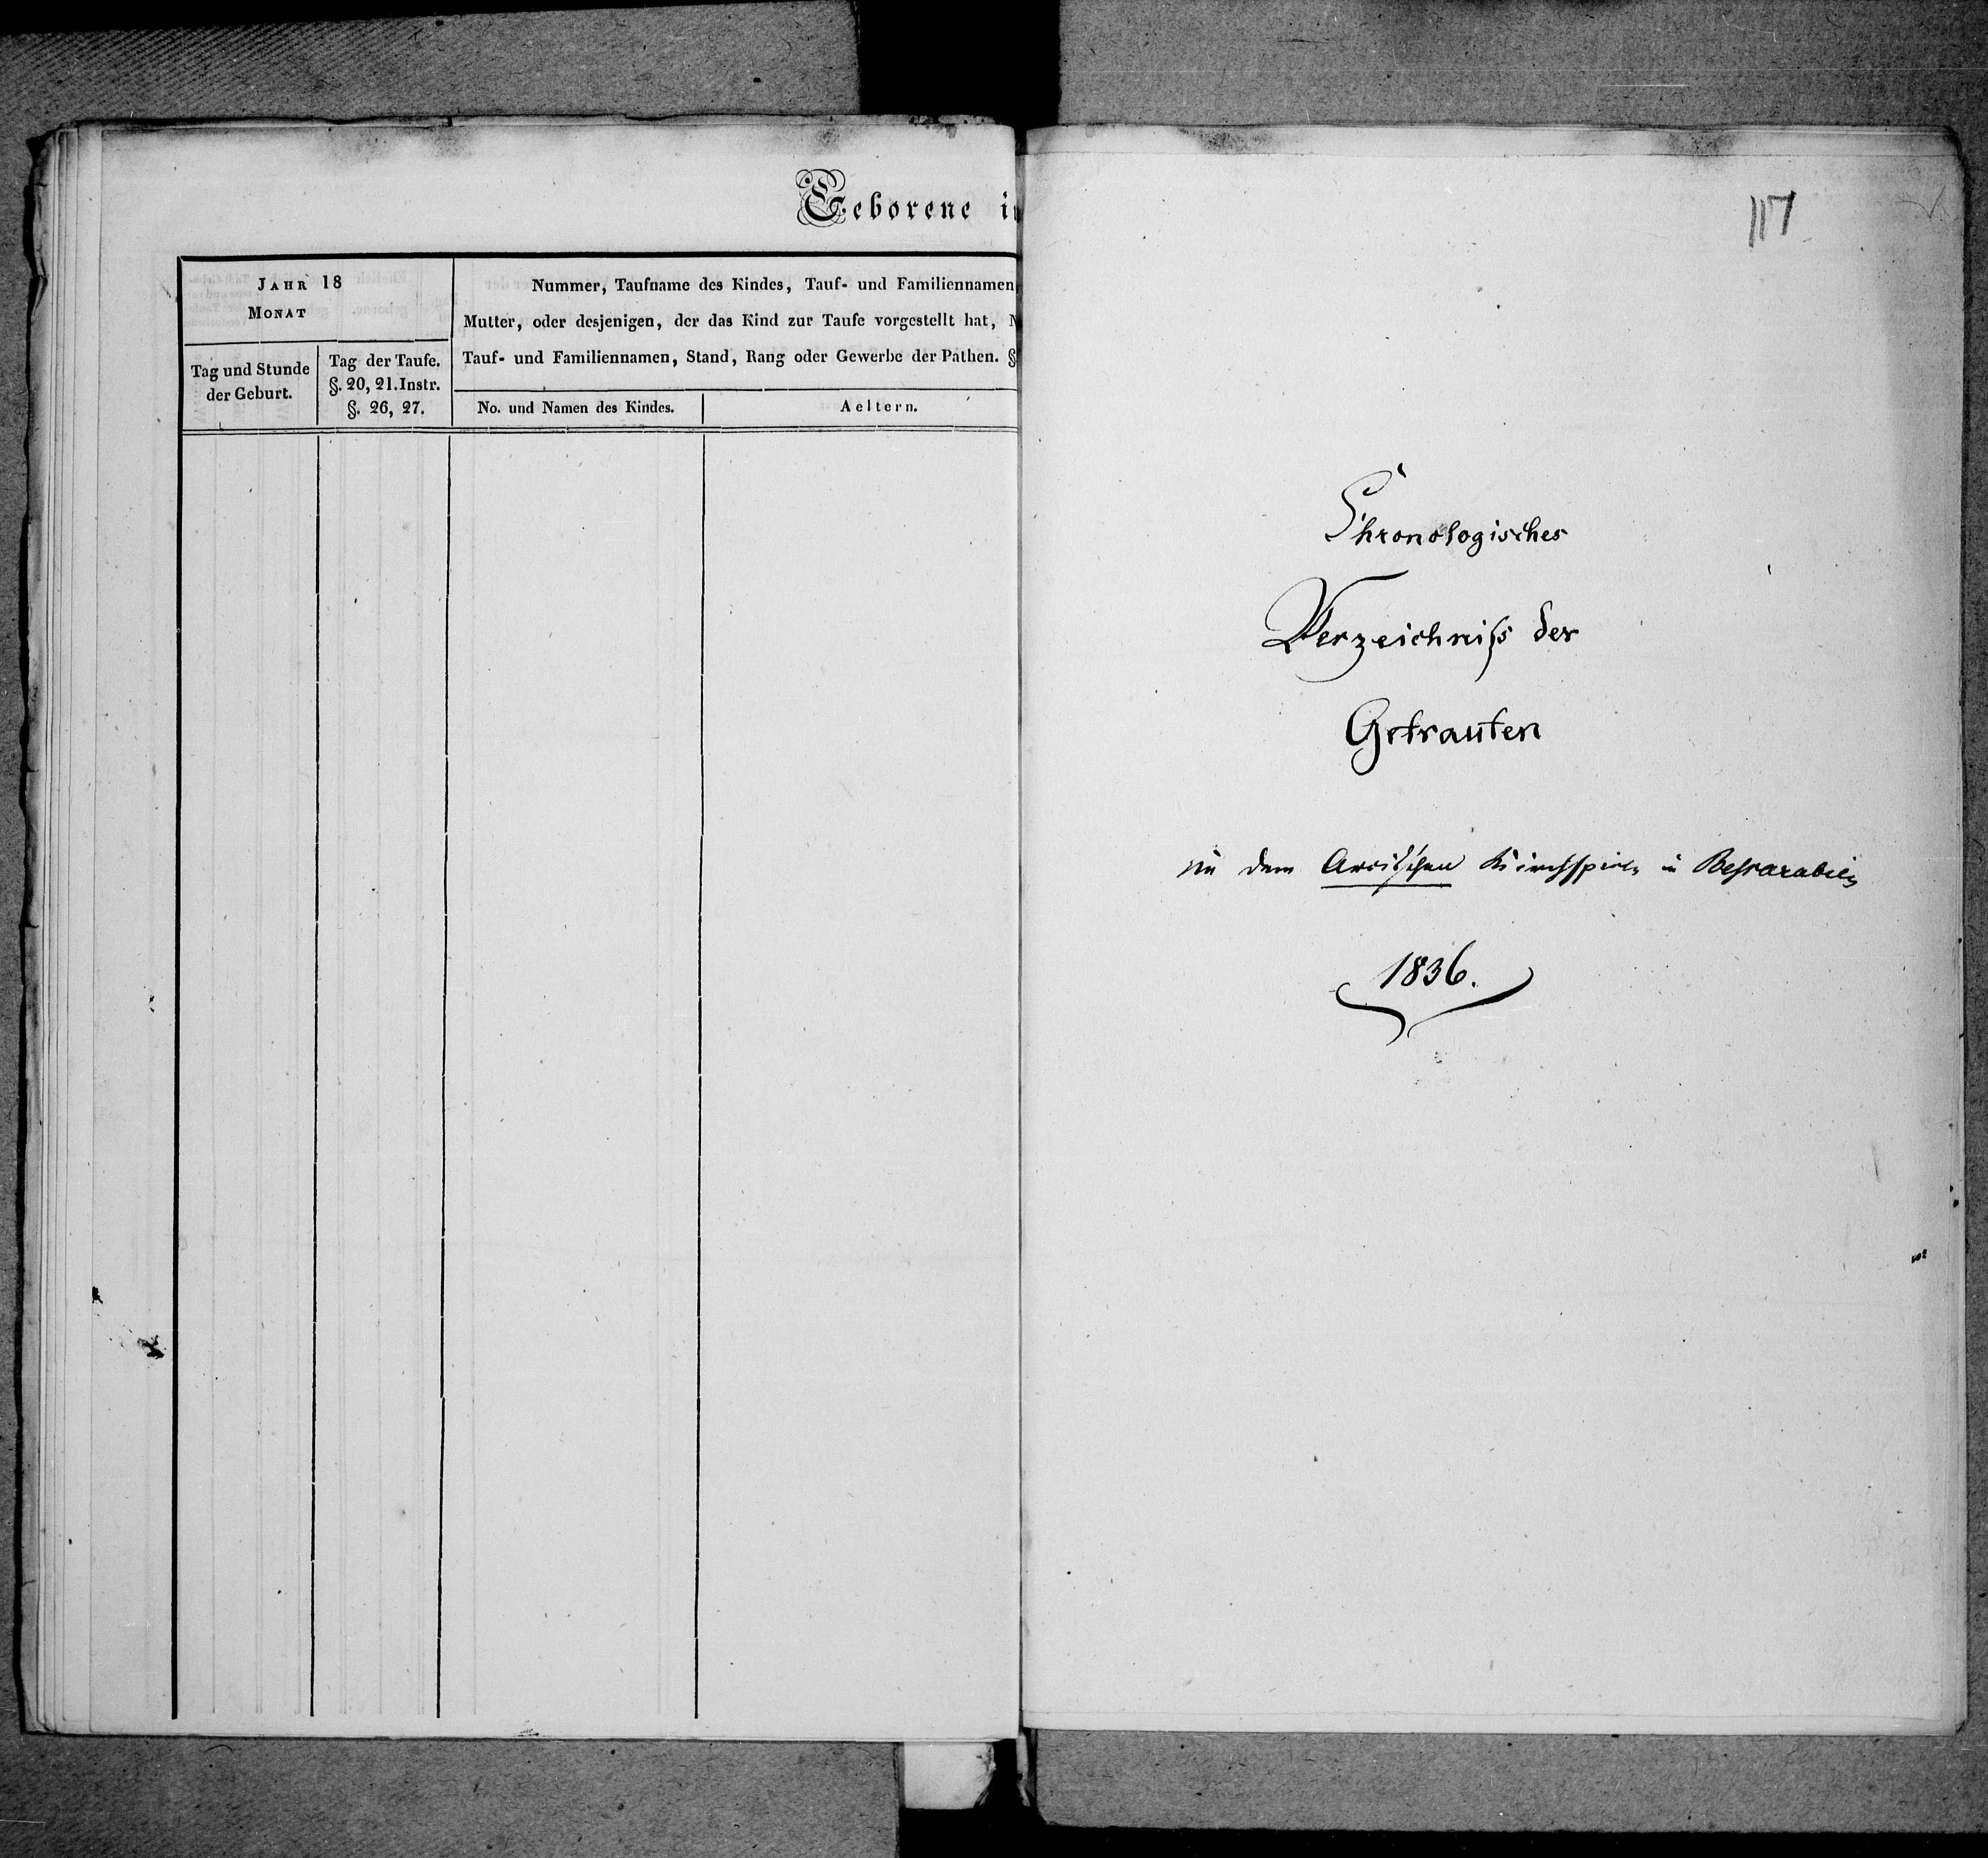 Geborene i
JAHR 18
MONAT
Tag und Stunde
der Geburt.
Tag der Taufe.
§. 20, 21. Instr.
§. 26, 27.
Nummer, Taufname des Kindes, Tauf- und Familiennamen
Mutter, oder desjenigen, der das Kind zur Taufe vorgestellt hat,
Tauf- und Familiennamen, Stand, Rang oder Gewerbe der Pathen. §
No. und Namen des Kindes.
Aeltern.
117
Chronologisches
Verzeichniß der
Getrauten
in dem Arcis'schen Kirchspiele in Beßarabien
1836.